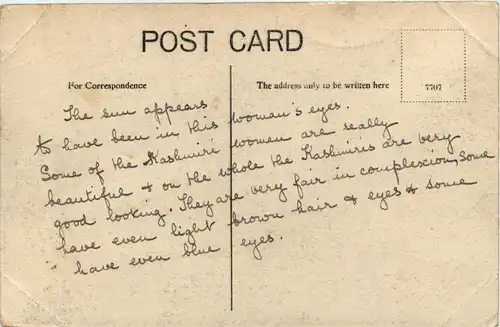 POST CARD
For Correspondence
The address only to be written here
7707
The sun appears
to have been in this woman's eyes.
Some of the Kashmiri women are really
beautiful & on the whole the Kashmiris are very
good looking. They are very fair in complexion, some
have even light brown hair & eyes & some
have even blue eyes.